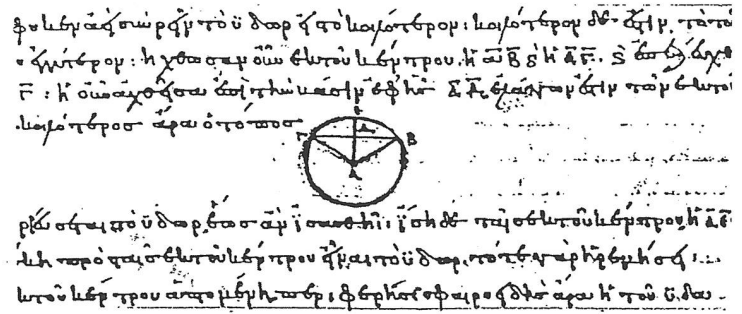 φυκεν ἀεὶ συρρεῖν τὸ ὕδωρ εἰς τὸ κοιλότερον: κοιλότερον δέ ἐστιν, τὸ τοῦ
ἐγγύτερον: ἤχθωσαν οὖν ἐκ τοῦ κέντρου, ἡ ΑΒ ϗ ἡ ΑΓ. ϗ
Γ: ἡ οὖν ἀχθεῖσα ἐπὶ τὴν βάσιν ἐφ' ἧς ΑΔ, ἐλάττων ἐστὶν τῶν ἐκ τοῦ
κοιλότερος ἄρα ὁ τόπος
Ε
Δ
Γ Β
Α
ρεύσεται τὸ ὕδωρ, ἕως ἂν ἰσασθῆι: ἴση δὲ ταῖς ἐκ τοῦ κέντρου, ἡ ΑΕ
κη πρὸς ταῖς ἐκ τοῦ κέντρου εἶναι τὸ ὕδωρ. τότε γὰρ ἠρεμήσει
κ τοῦ κέντρου ἁπτομένη περιφερής: σφαιροειδὴς ἄρα ἡ τοῦ ὕδα